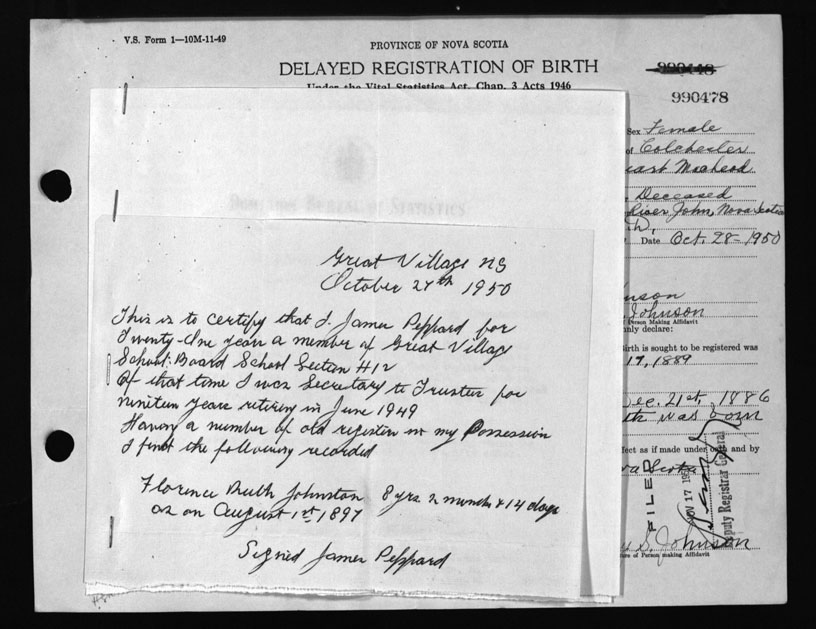 V.S. Form 1—10M-11-49
PROVINCE OF NOVA SCOTIA
DELAYED REGISTRATION OF BIRTH
Under the Vital Statistics Act, Chap. 3 Acts 1946
990448
990478
Sex Female
of Colchester
Deceased
River John, Nova Scotia
Date Oct. 28-1950
DOMINION BUREAU OF STATISTICS
Great Village NS
October 27th 1950
This is to certify that I. James Peppard for
Twenty-One years a member of Great Village
School: Board School Section #12
Of that time I was Secretary to Trustees for
nineteen years retiring in June 1949
Having a number of old registers in my Possession
I find the following recorded
Florence Ruth Johnston 8 yrs 2 months & 14 days
as on August 1st 1897
Signed James Peppard
nson
Johnson
Person Making Affidavit
nly declare:
Birth is sought to be registered was
17, 1889
Dec. 21st, 1886
th was born
ffect as if made under oath and by
va Scotia
FILED
NOV 17 195
Deputy Registrar General
S. Johnson
ure of Person making Affidavit